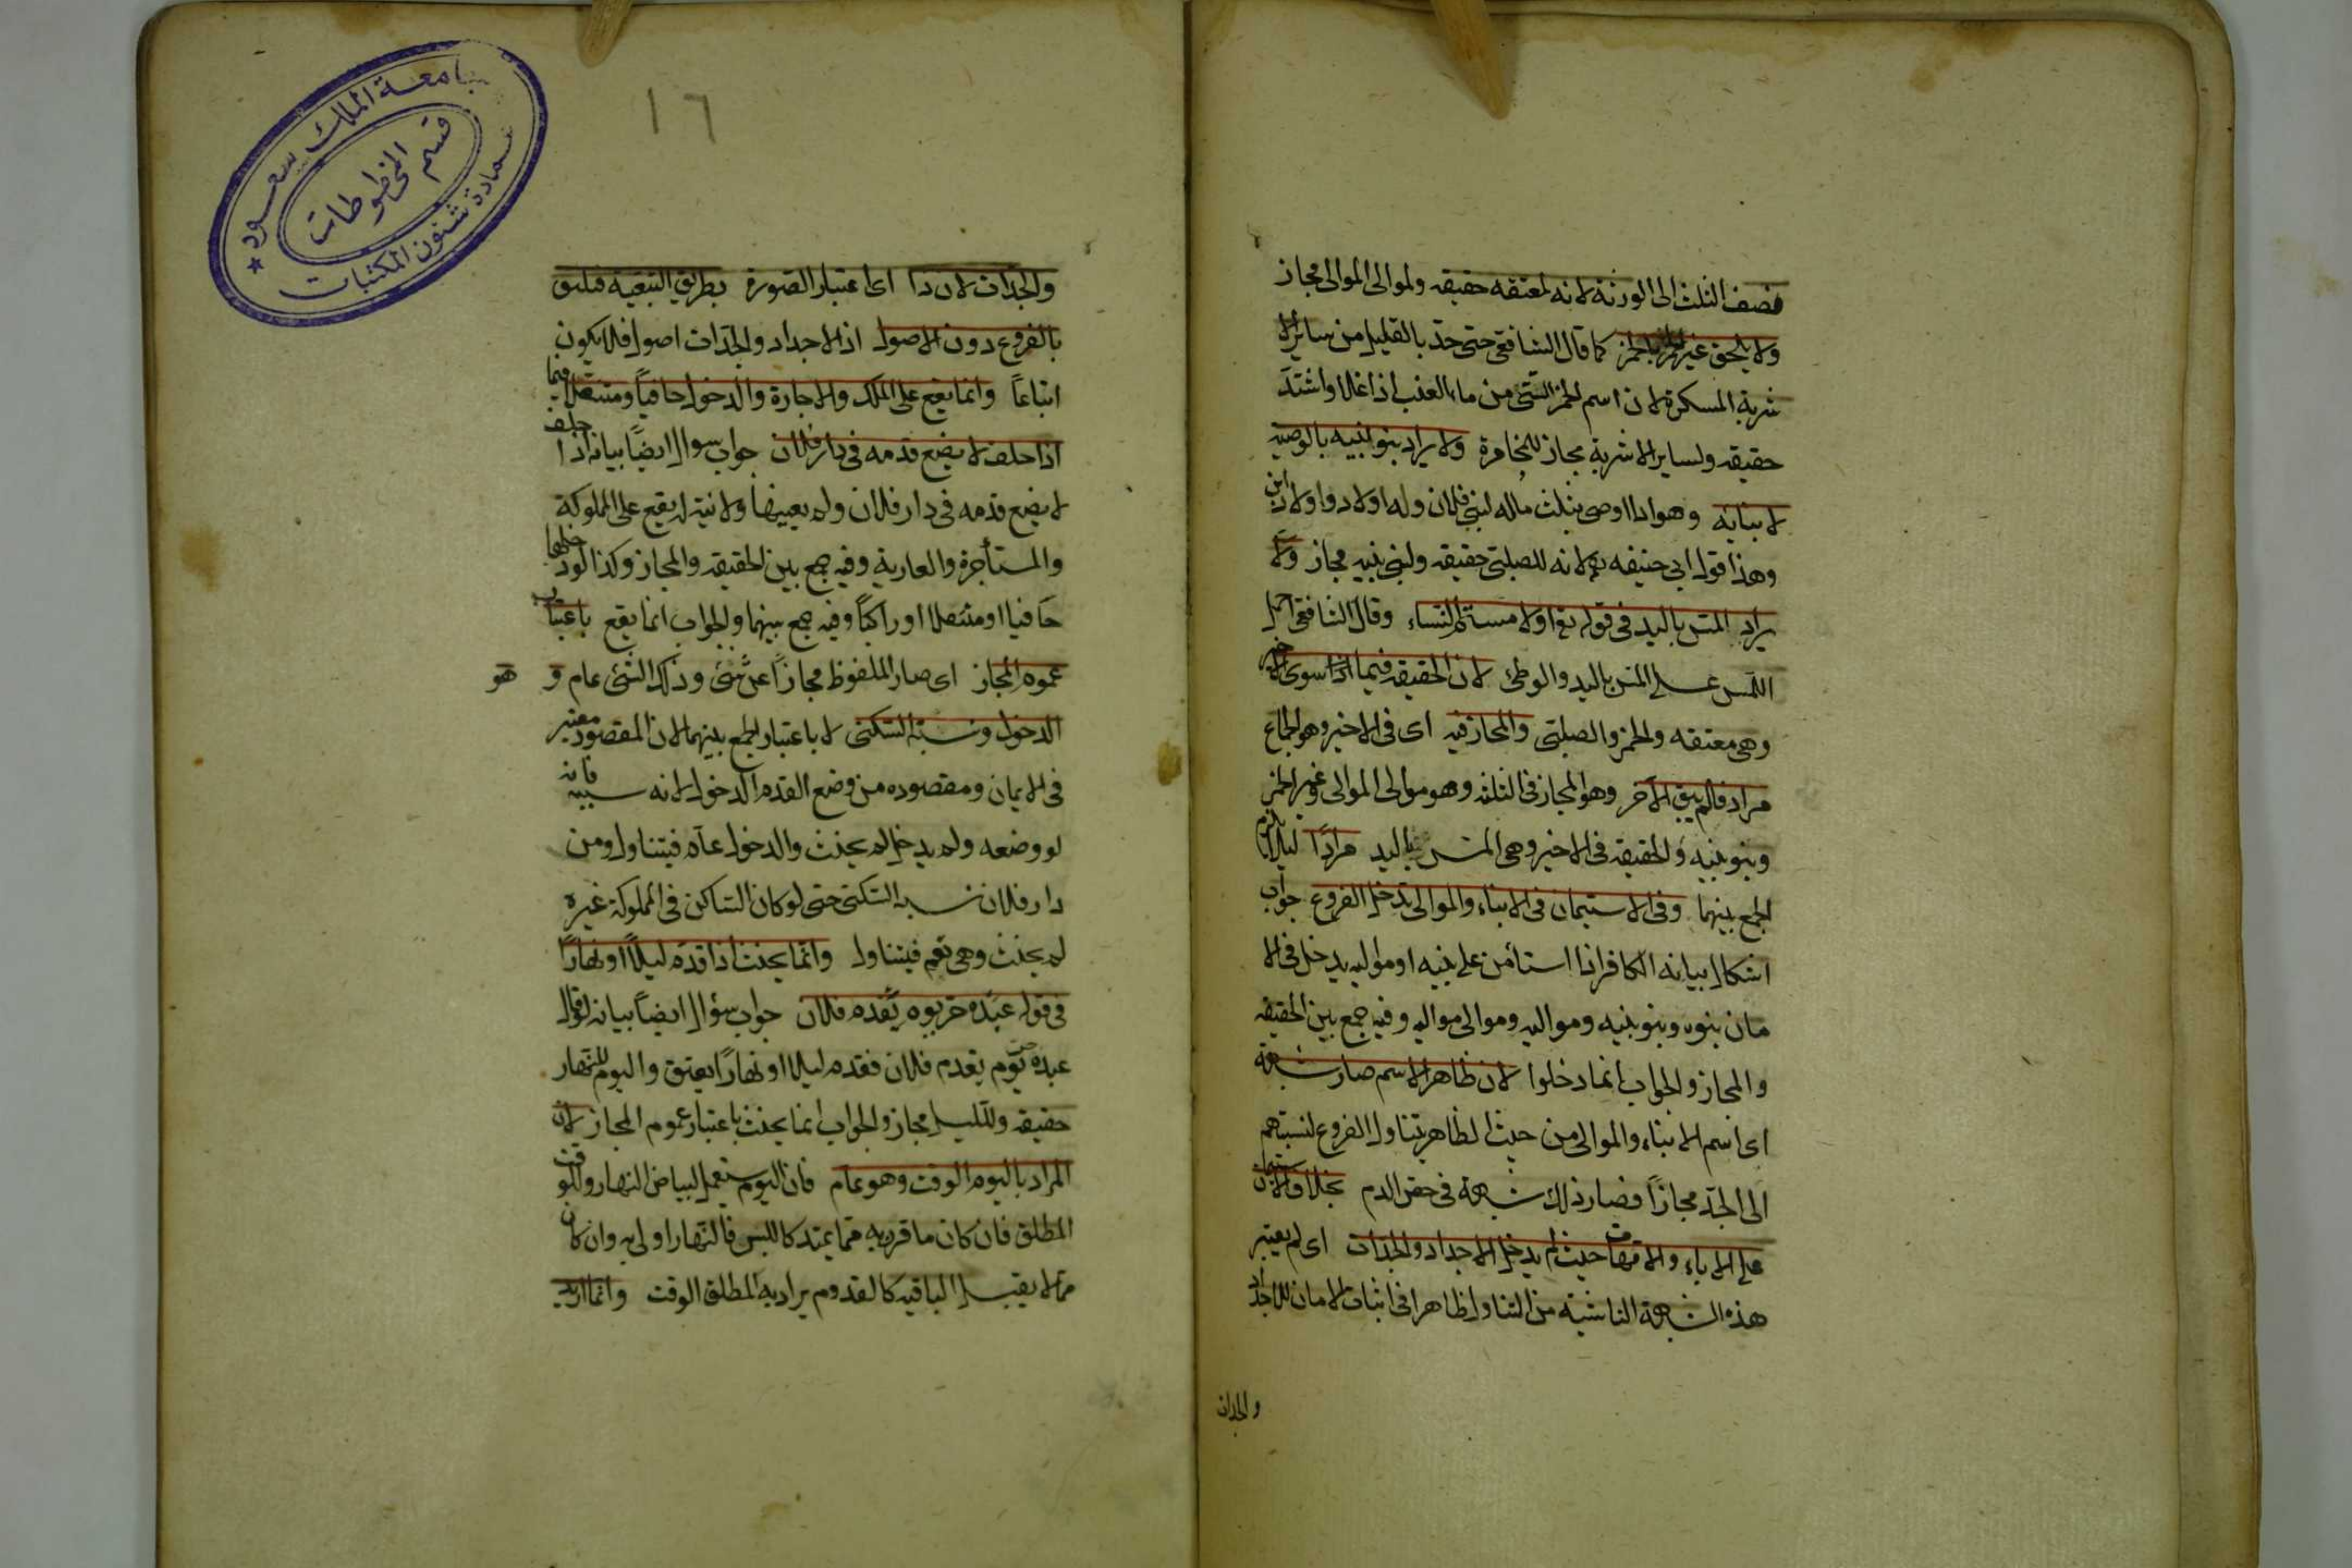 فنصف الثلث الى الورثة لانه لمعتقه حقيقه ولموالى الموالى مجاز
ولا يلحق غير الخمر بالخمر كما قال الشافعى حتى حد بالقليل من ساير الا
شربة المسكرة لان اسم الخمر للنى من ماء العنب اذا غلا واشتد
حقيقه ولساير الاشربة مجاز للمخامرة ولا يراد بنو بنيه بالوصيه
لابنايه وهو اذا اوصى بثلث ماله لبنى فلان وله اولاد واولاد ابن
وهذا قول ابى حنيفه لانه للصلبى حقيقه ولبنى بنيه مجاز ولا
يراد المس باليد فى قوله تع او لامستم النساء وقال الشافعى
اللمس على المس باليد والوطئ لان الحقيقه فيما سوى الاخير
وهى معتقه والخمر والصلبى والمجاز فيه اى فى الاخير وهو الجماع
مراد فلم يبق الاخر وهو المجاز فى الثلثه وهو موالى الموالى وغير الخمر
وبنو بنيه والحقيقه فى الاخير وهى المس باليد مرادا ليلا يلزم
الجمع بينهما وفى الاستيمان فى الابناء والموالى تدخل الفروع جواب
اشكال بيانه الكافر اذا استأمن على بنيه او مواليه يدخل فى الا
مان بنوه وبنو بنيه ومواليه وموالى مواليه وفيه جمع بين الحقيقه
والمجاز والجواب انما دخلوا لان ظاهر الاسم صار شبهة
اى اسم الابناء والموالى من حيث الظاهر يتناول الفروع لنسبتهم
الى الجد مجازا فصار ذلك شبهة فى حقن الدم بخلاف الاستيمان
على الاباء والامهات حيث لم يدخل الاجداد والجدات اى لم يعتبر
هذه الشبهة الناشئة من التناول ظاهرا فى اثبات الامان للاجداد
والجدات
١٦
والجدات لان ذا اى اعتبار الصورة بطريق التبعيه فيليق
بالفروع دون الاصول اذ الاجداد والجدات اصول فلا يكون
اتباعا وانما يقع على الملك والاجارة والدخول حافيا ومتنعلا فيما
اذا حلف لا يضع قدمه فى دار فلان جواب سوال ايضا بيانه اذا حلف
لا يضع قدمه فى دار فلان ولم يعينها ولا نية له يقع على المملوكة
والمستأجرة والعارية وفيه جمع بين الحقيقه والمجاز وكذا لو دخلها
حافيا او متنعلا او راكبا وفيه جمع بينهما والجواب انما يقع باعتبار
عموم المجاز اى صار الملفوظ مجازا عن شئ وذلك الشئ عام و هو
الدخول ونسبة السكنى لا باعتبار الجمع بينهما لان المقصود معتبر
فى الايمان ومقصوده من وضع القدم الدخول لانه سببه فانه
لو وضعه ولم يدخل لم يحنث والدخول عام فيتناول ومن
دار فلان نسبه السكنى حتى لو كان الساكن فى المملوكة غيره
لم يحنث وهى تعم فيتناول وانما يحنث اذا قدم ليلا او نهارا
فى قوله عبده حر يوم يقدم فلان جواب سؤال ايضا بيانه لو قال
عبده حر يوم يقدم فلان فقدم ليلا او نهارا يعتق واليوم للنهار
حقيقه ولليل مجاز والجواب انما يحنث باعتبار عموم المجاز لان
المراد باليوم الوقت وهو عام فان اليوم يستعمل لبياض النهار وللوقت
المطلق فان كان ما قرن به مما يمتد كاللبس فالنهار اولى به وان كان
مما لا يقبل كالقدوم يراد به المطلق الوقت وانما اريد
جامعة الملك سعود
قسم المخطوطات
عمادة شئون المكتبات